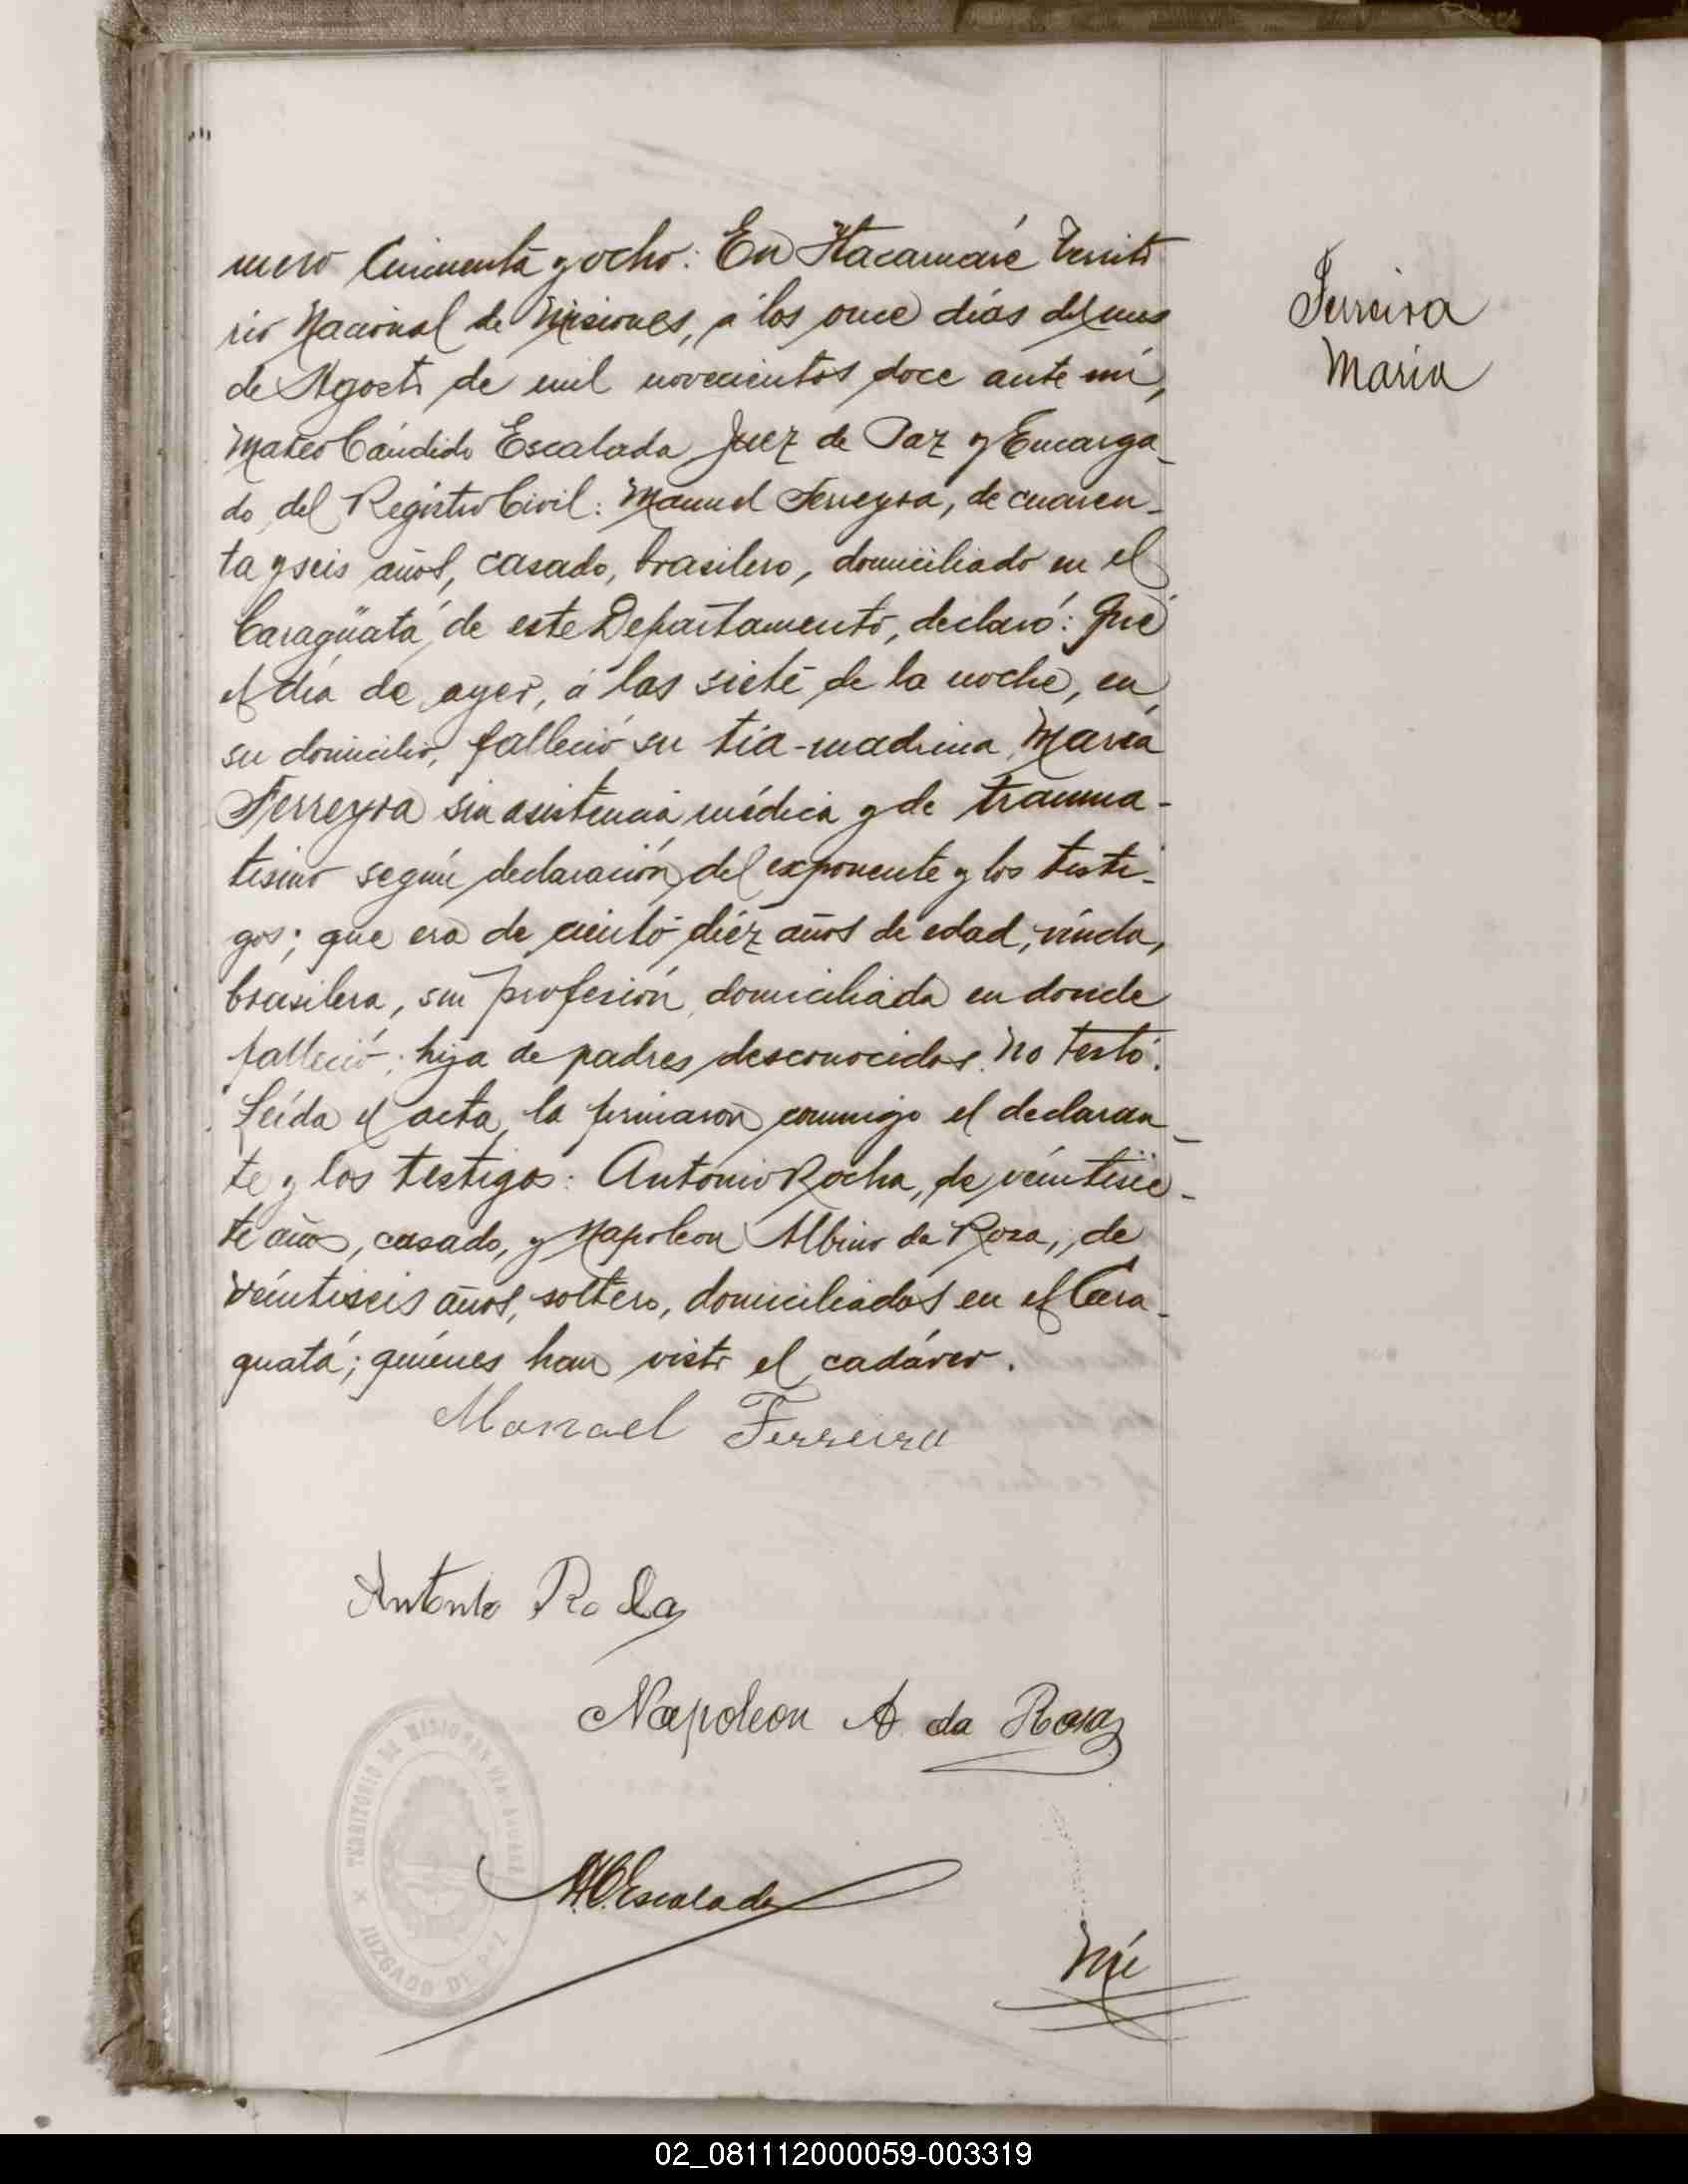 mero Cincuenta y ocho: En Itacaruaré Territo
rio Nacional de Misiones, á los once días del mes
de Agosto de mil novecientos doce ante mí,
Mateo Cándido Escalada Juez de Paz y Encarga-
do del Registro Civil: Manuel Ferreyra, de cuaren-
ta y seis años, casado, brasilero, domiciliado en el
Caragüatá, de este Departamento, declaró: Que
el día de ayer, á las siete de la noche, en
su domicilio, falleció su tía-madrina María
Ferreyra sin asistencia médica y de trauma-
tismo según declaración del exponente y los testi-
gos; que era de ciento diéz años de edad, viuda,
brasilera, sin profesión, domiciliada en donde
falleció; hija de padres desconocidos. No testó.
Leída el acta, la firmaron conmigo el declaran-
te y los testigos: Antonio Rocha, de veintisie-
te años, casado, y Napoleon Albino da Rosa, de
veintiseis años, soltero, domiciliados en el Cara-
guatá; quiénes han visto el cadáver.
Manael Ferreira
Antonio Rocha
Napoleon A. da Rosa
M.C. Escalada
TERRITORIO DE MISIONES
JUZGADO DE PAZ
Nú
Ferreira
María
02_081112000059-003319